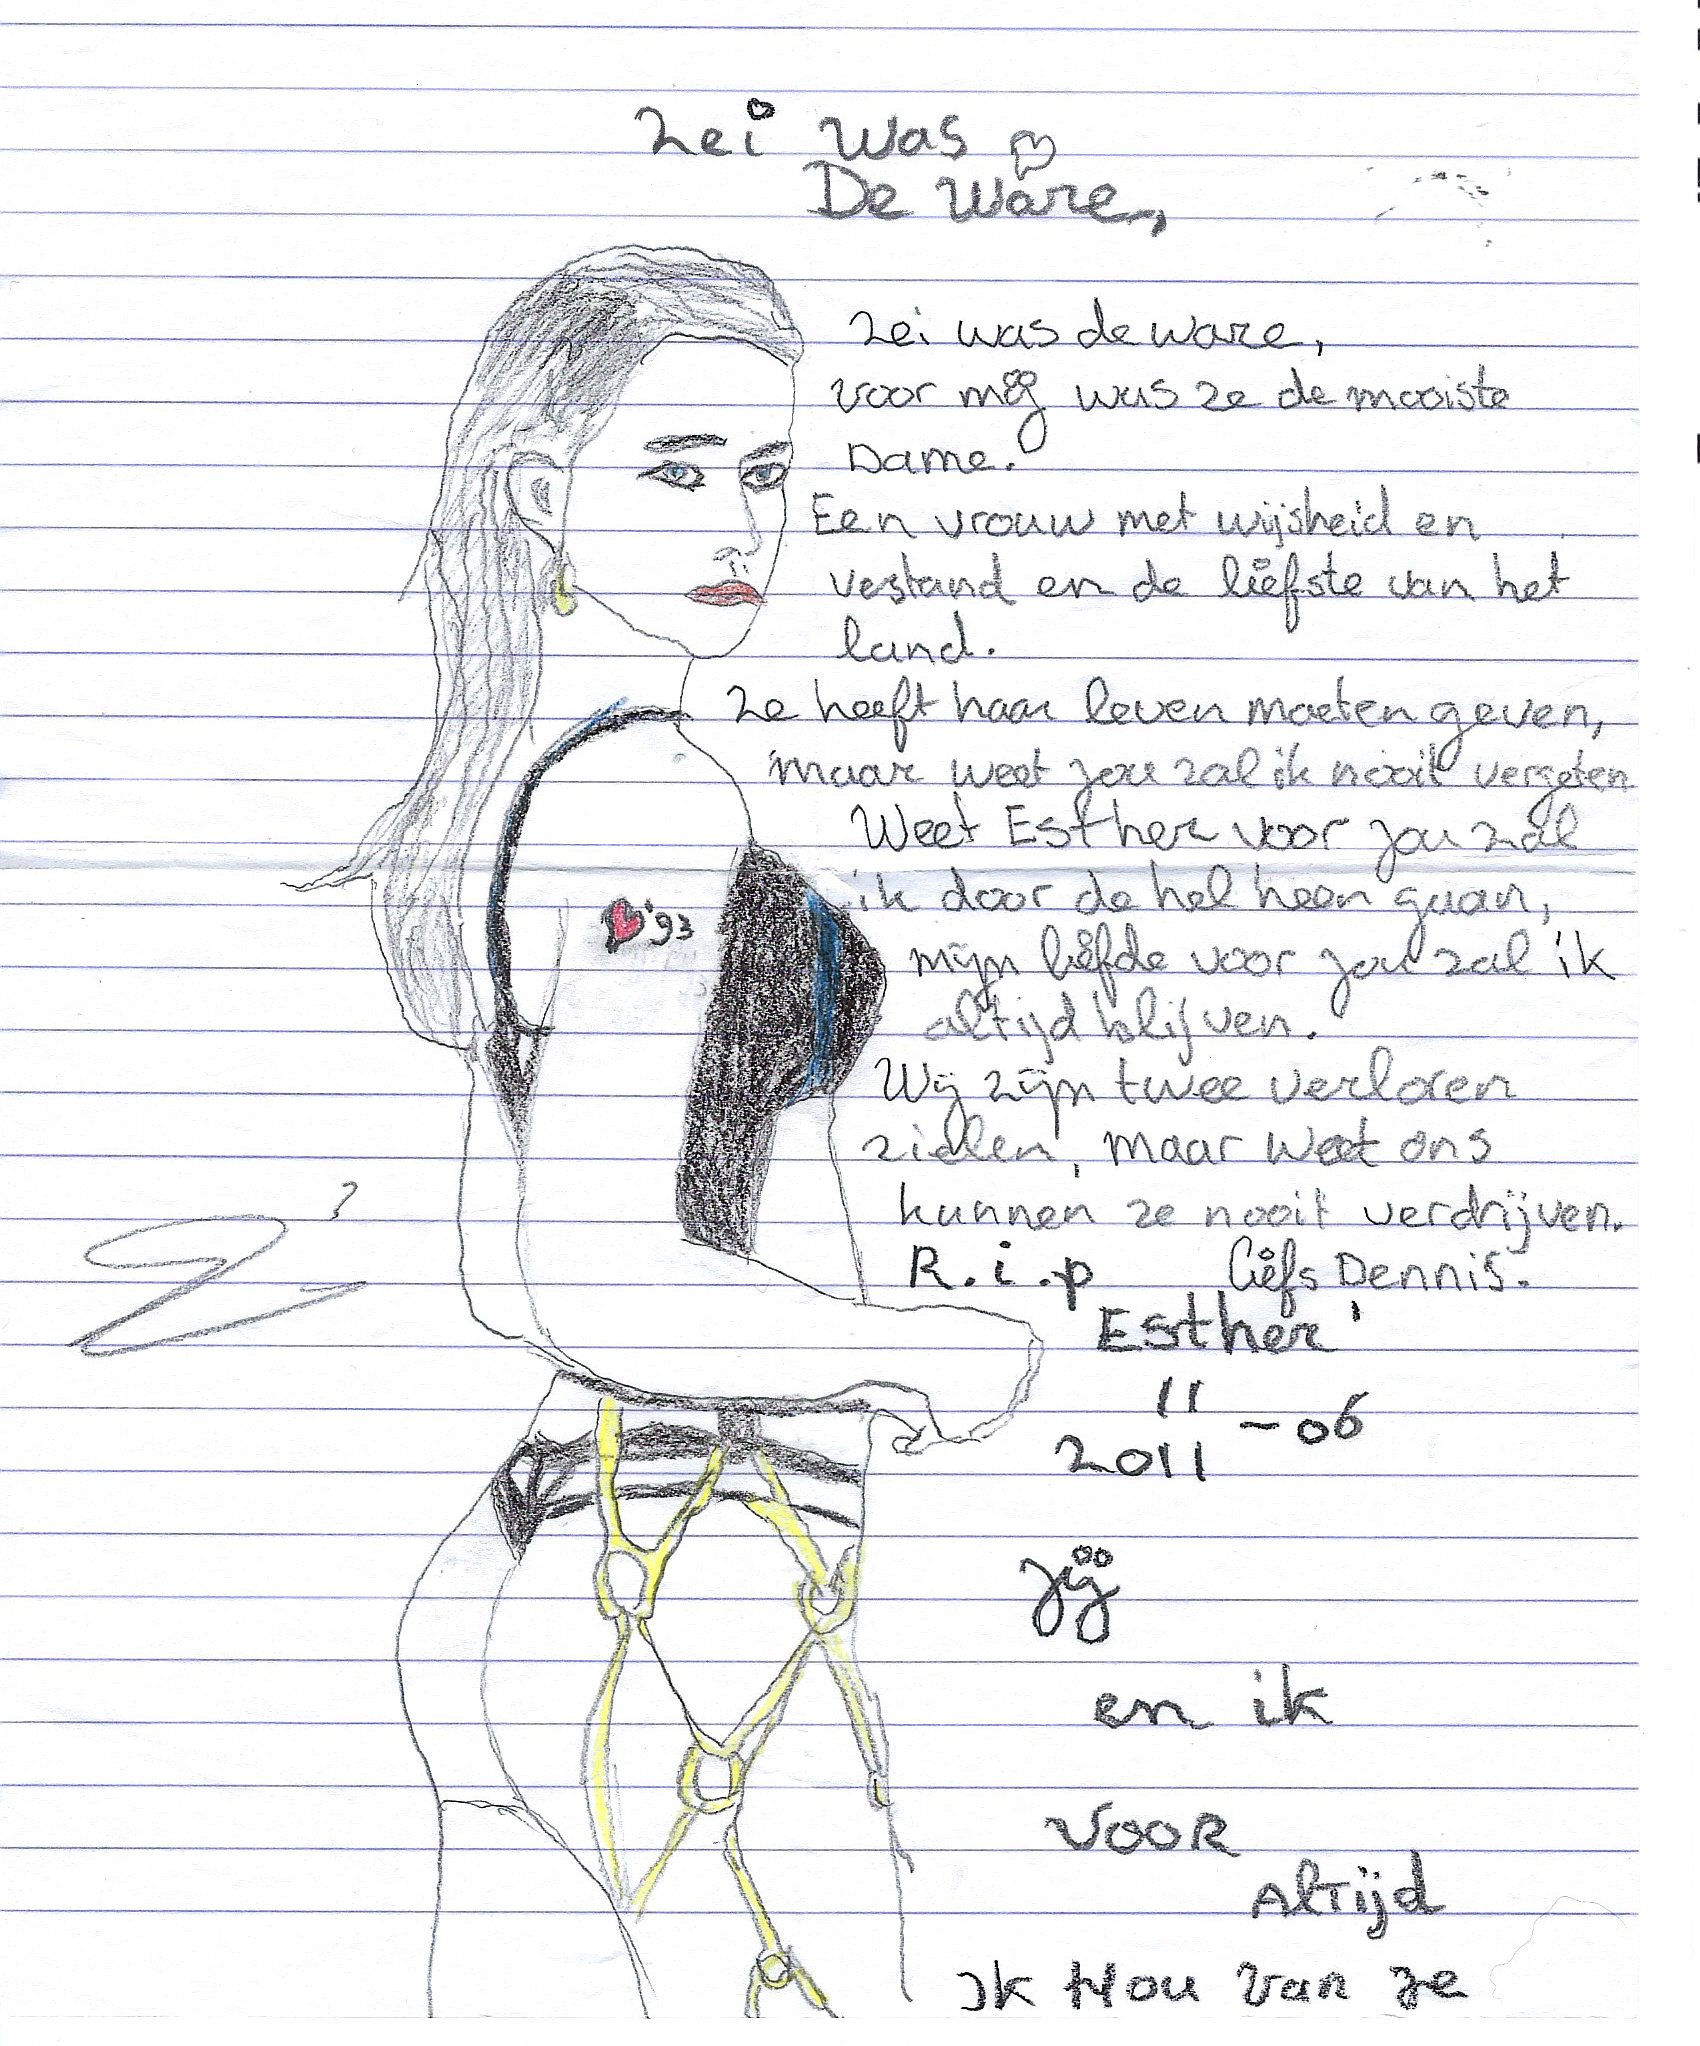 Zei was
De Ware,
Zei was de ware,
voor mij was ze de mooiste
Dame.
Een vrouw met wijsheid en
verstand en de liefste van het
land.
Ze heeft haar leven moeten geven,
maar weet jou zal ik nooit vergeten
Weet Esther voor jou zal
ik door de hel heen gaan,
mijn liefde voor jou zal ik
altijd blijven.
Wij zijn twee verloren
zielen, maar weet ons
kunnen ze nooit verdrijven.
R.i.p Liefs Dennis.
Esther
♥'93
11
2011 - 06
jij
en ik
VOOR
Altijd
Ik Hou van je